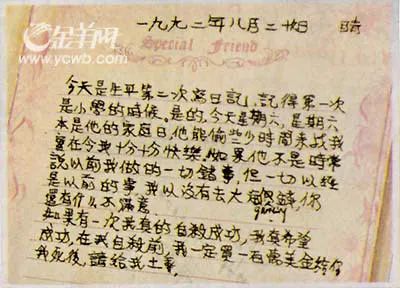 金羊网
www.ycwb.com
一九九二年八月二十 晴
Special Friend
今天是生平第二次寫日記,記得第一次
是小學的時候。是的,今天是期六,星期六
本是他的家庭日,他能偷些少時間來找我
實在令我十分十分快樂,如果他不是時常
說以前我做的一切錯事,但一切以經
是以前的事,我以沒有去大 你
還有什么不滿意
如果有一次我真的自殺成功,我真希望
成功,在我自殺前,我一定買一百萬美金給你
我死後,請給我土葬,